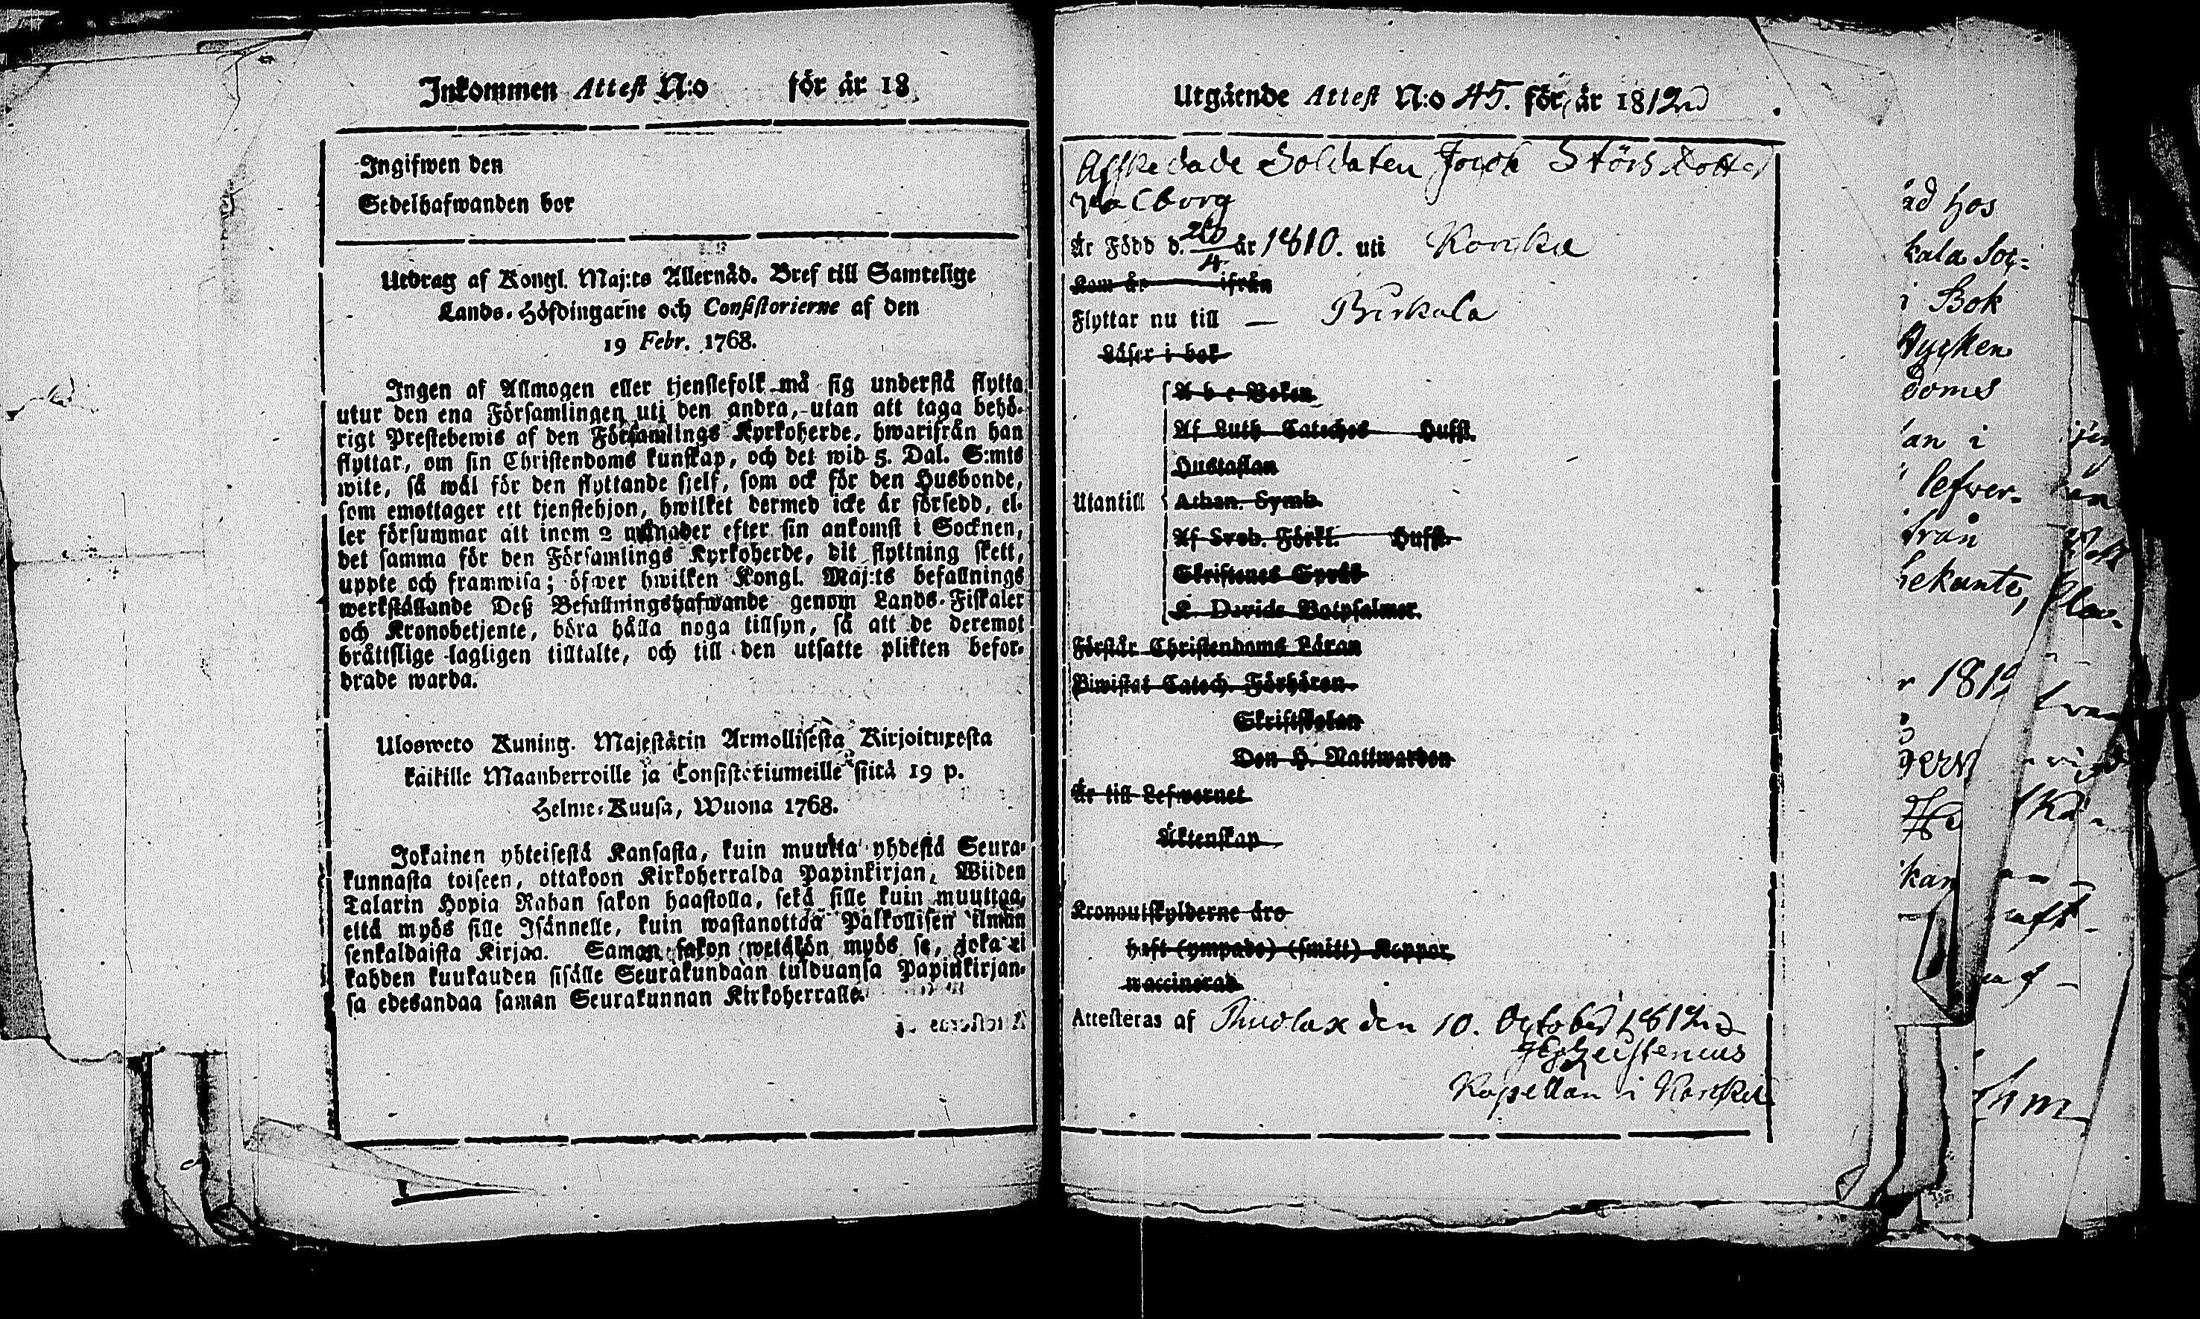 Inkommen Attest N:o för år 18
Ingifwen den
Sedelhafwanden bor
Utdrag af Kongl. Maj:ts Allernåd. Bref till Samtelige
Lands-Höfdingarne och Consistorierne af den
19 Febr. 1768.
Ingen af Allmogen eller tjenstefolk må sig understå flytta
utur den ena Församlingen uti den andra, utan att taga behö-
rigt Prestebewis af den Församlings Kyrkoherde, hwarifrån han
flyttar, om sin Christendoms kunskap, och det wid 5. Dal. S:mts
wite, så wäl för den flyttande sjelf, som ock för den Husbonde,
som emottager ett tjenstehjon, hwilket dermed icke är försedd, el-
ler försummar att inom 2 månader efter sin ankomst i Socknen,
det samma för den Församlings Kyrkoherde, dit flyttning skett,
uppte och framwisa; öfwer hwilken Kongl. Maj:ts befallnings
werkställande Deß Befallningshafwande genom Lands-Fiskaler
och Kronobetjente, böra hålla noga tillsyn, så att de deremot
bråttslige lagligen tilltalte, och till den utsatte plikten befor-
drade warda.
Ulosweto Kuning. Majestätin Armollisesta Kirjoituxesta
kaikille Maanherroille ja Consistoriumeille siitä 19 p.
Helme-Kuusa, Wuona 1768.
Jokainen yhteisestä Kansasta, kuin muutta yhdestä Seura-
kunnasta toiseen, ottakoon Kirkoherralda Papinkirjan, Wiiden
Talarin Hopia Rahan sakon haastolla, sekä sille kuin muuttaa,
että myös sille Isännelle, kuin wastanottaa Palkollisen ilman
senkaldaista Kirjaa. Saman sakon wetäkön myös se, joka ei
kahden kuukauden sisälle Seurakundaan tulduansa Papinkirjan-
sa edesandaa saman Seurakunnan Kirkoherralle.
Utgående Attest N:o 45. för år 1812
Affskedade Soldaten Jacob Störs Dotter
Walborg
Är Född d. 26/4 år 1810. uti Korske
Kom år ifrån
Flyttar nu till — Birkala
Läser i bok
A b c Boken
Af Luth. Cateches Hufst.
Hustaflan
Utantill Athan. Symb.
Af Sveb. Förkl. Hufst.
Skriftenes Språk
K. Davids Botpsalmer.
Förstår Christendoms Läran
Biwistat Catech. Förhören.
Skriftskolan
Den H. Nattwarden
Är till Lefwernet
Äktenskap
Kronoutskylderne äro
haft (ympade) (smitt) Koppor
waccinerad
Attesteras af Thudlax den 10. October 1812
Kapellan i Korske
ad hos
kala Soc-
i Bok
Mycken
doms
an i
lefver-
från
bekante,
r 1812